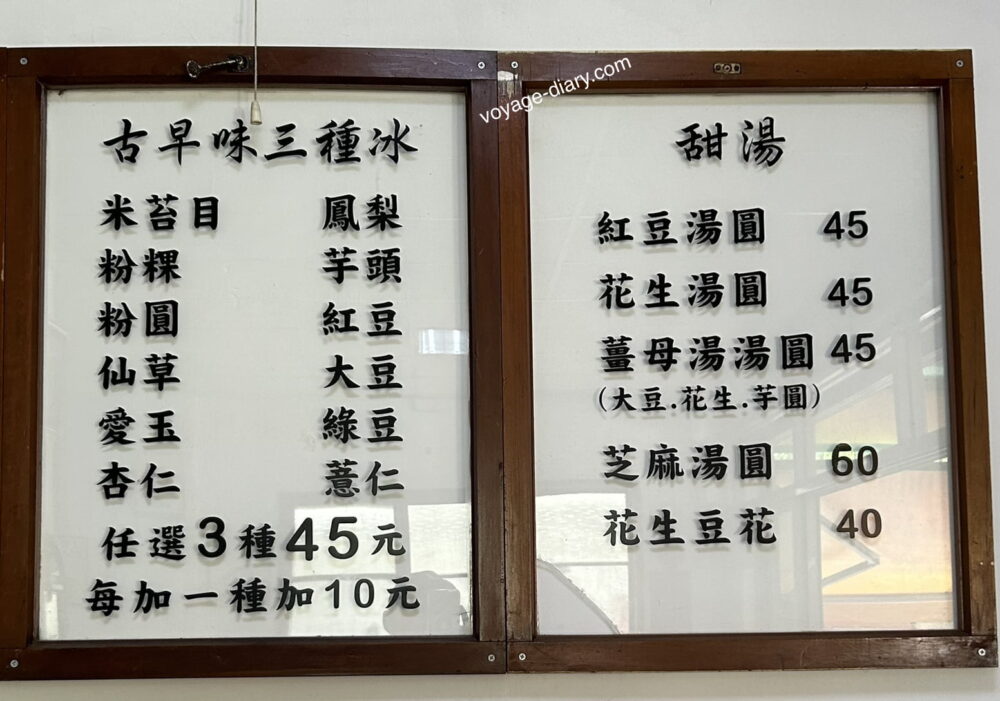 古早味三種冰
米苔目 鳳梨
粉粿 芋頭
粉圓 紅豆
仙草 大豆
愛玉 綠豆
杏仁 薏仁
任選3種45元
每加一種加10元
voyage-diary.com
甜湯
紅豆湯圓 45
花生湯圓 45
薑母湯湯圓 45
(大豆.花生.芋圓)
芝麻湯圓 60
花生豆花 40